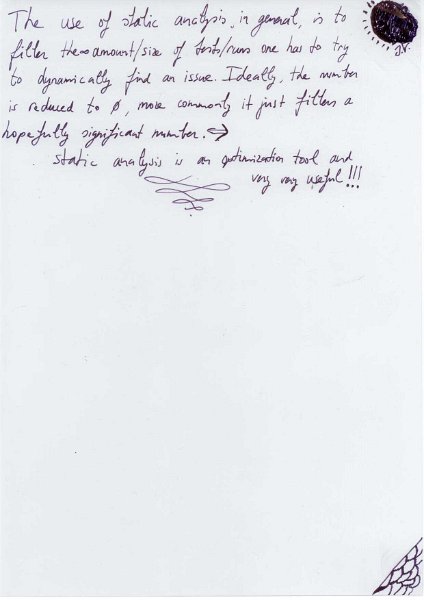 The use of static analysis, in general, is to
filter the amount/size of tests/runs one has to try
to dynamically find an issue. Ideally, the number
is reduced to Ø, more commonly it just filters a
hopefully significant number. ⇒
static analysis is an optimization tool and
very very useful!!!